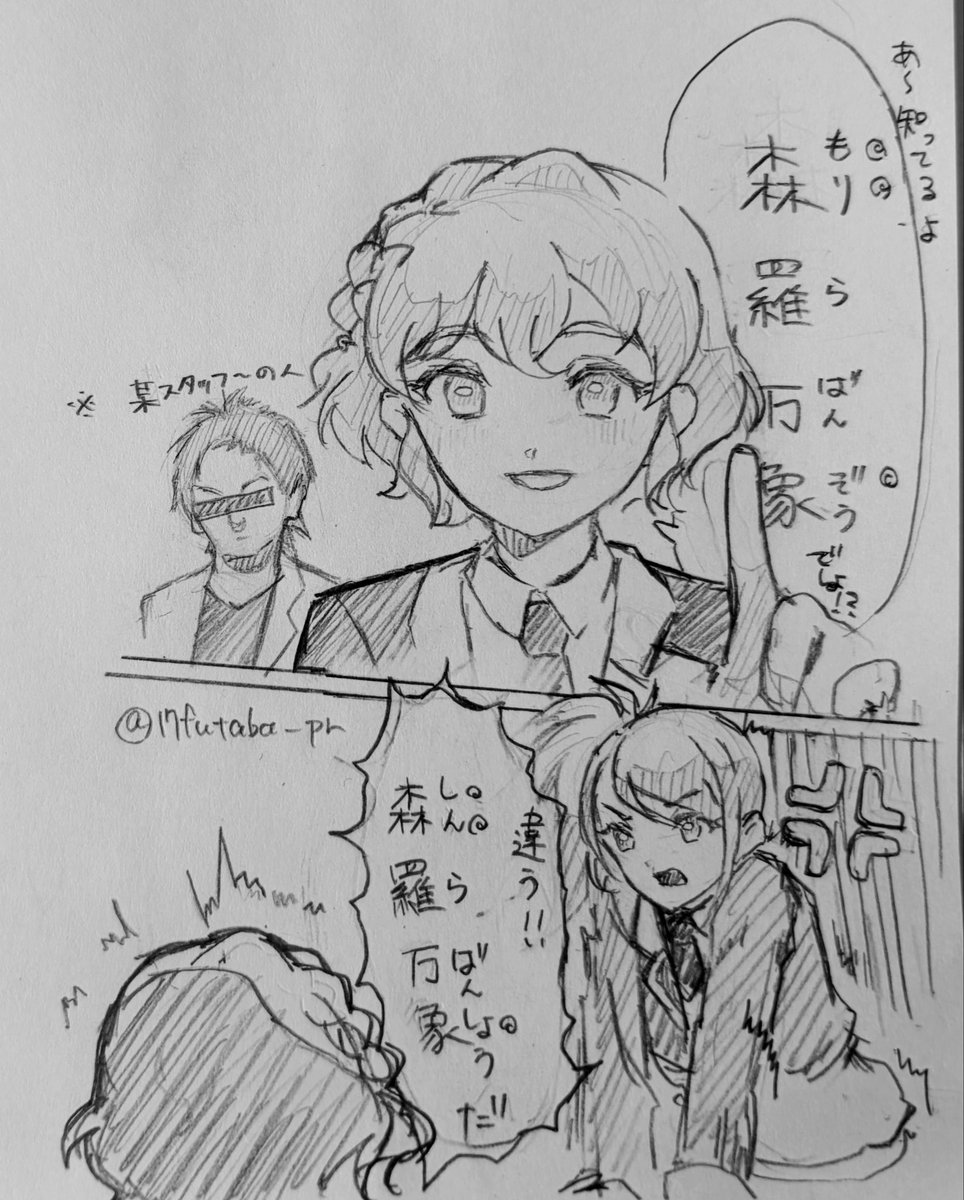 あ〜知ってるよ
森羅万象
もりらばんぞう
でしょ!?
※某スタッフ〜の人
@17futaba_pr
違う!!
森羅万象
しんらばんしょう
だ!!